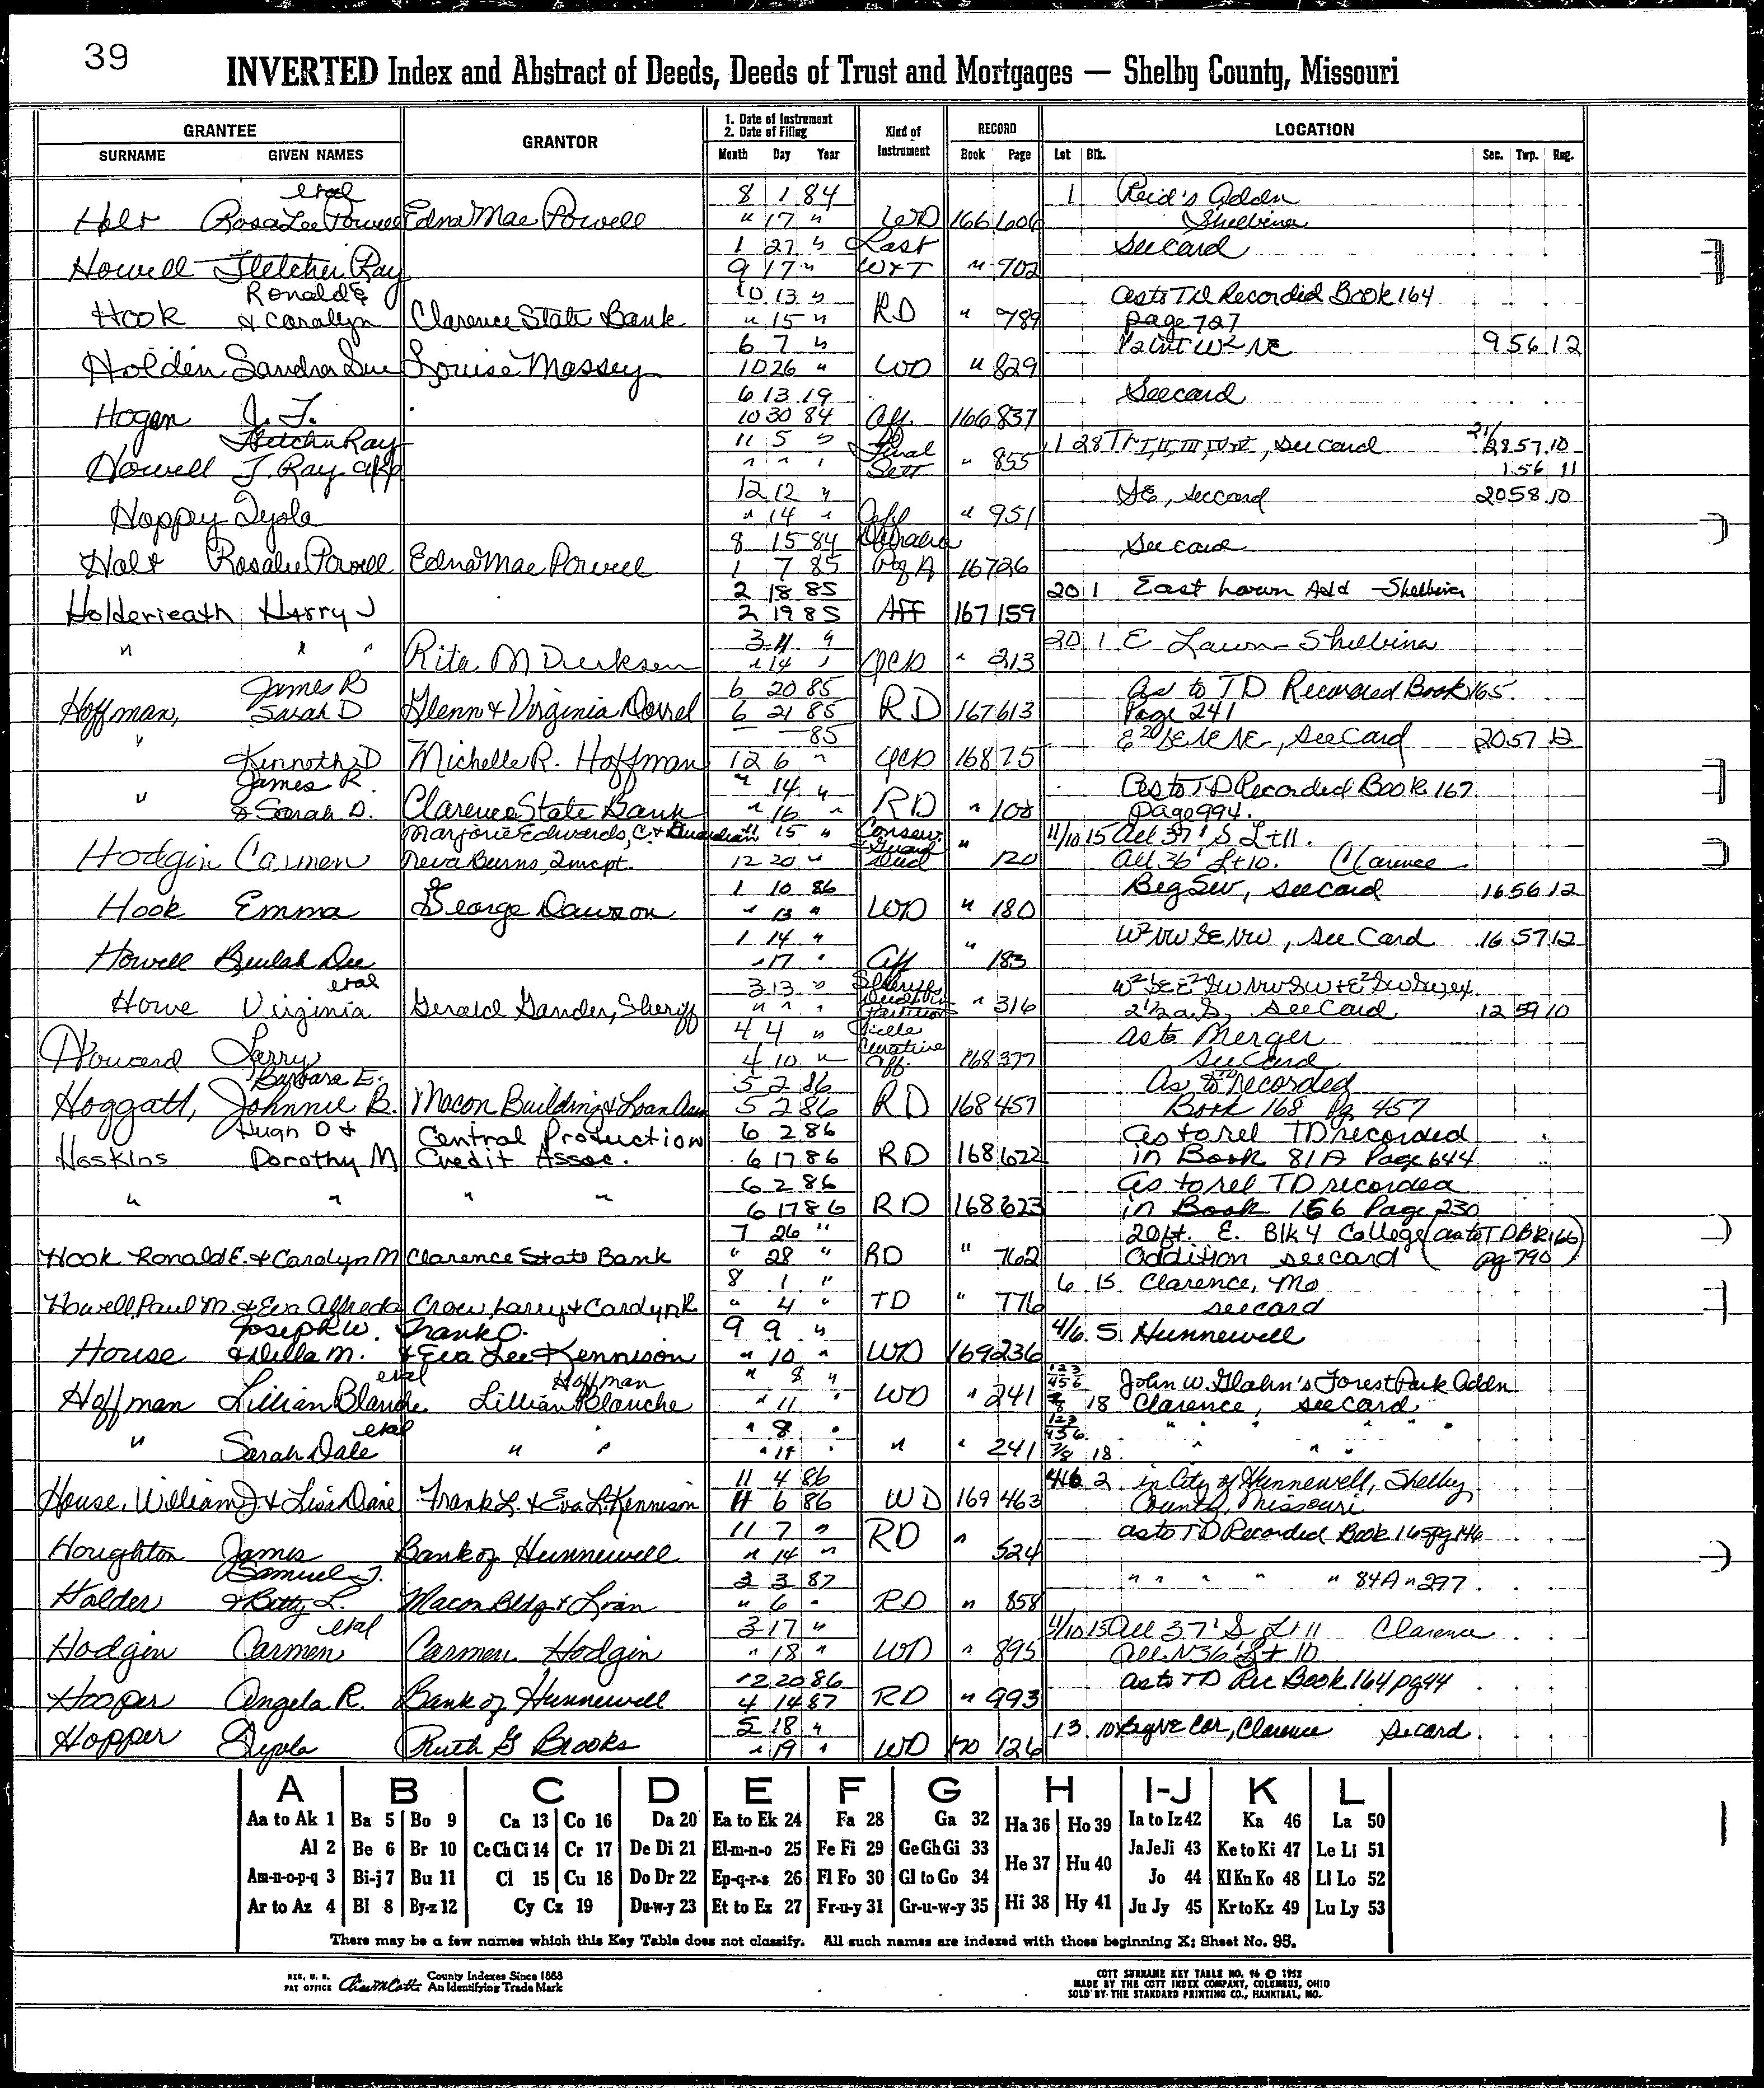 39
INVERTED Index and Abstract of Deeds, Deeds of Trust and Mortgages — Shelby County, Missouri
GRANTEE
SURNAME GIVEN NAMES
GRANTOR
1. Date of Instrument
2. Date of Filing
Month Day Year
Kind of Instrument
RECORD
Book Page
LOCATION
Lot Blk. Sec. Twp. Rng.
etal 8 1 84 1 Reid's Addn
Holt Rosa Lee Powell Edna Mae Powell " 17 " WD 166 606 Shelbina
1 27 " Last See card
Howell Fletcher Ray 9 17 " W&T " 702
Ronald E 10 13 " as to TD Recorded Book 164
Hook & Carolyn Clarence State Bank " 15 " RD " 789 page 727
6 7 " W2 NE 9 56 12
Holden Sandra Sue Louise Massey 10 26 " WD " 829
6 13 19 See card
Hogan J. F. 10 30 84 Aff. 166 837
Fletcher Ray 11 5 " Final 1 28 Tr I, II, III, IV, V, see card 21/28 57 10
Howell F. Ray aka " " " Sett " 855 1 56 11
12 12 " SE, see card 20 58 10
Hoppey Iyola " 14 " Aff " 951
8 15 84 See card
Holt Rosalee Powell Edna Mae Powell 1 7 85 167 26
2 18 85 20 1 East Lawn Add - Shelbina
Holderieath Harry J 2 19 85 AFF 167 159
3 11 " 20 1 E Lawn - Shelbina
" " " Rita M Dierksen " 14 " QCD " 213
James R 6 20 85 As to TD Recorded Book 165
Hoffman, Sarah D Glenn & Virginia Dorrel 6 21 85 RD 167 613 Page 241
85 NE NE, see Card 20 57 12
" Kenneth D Michelle R. Hoffman 12 6 " QCD 168 75
James R. " 14 " As to TD Recorded Book 167
" & Sarah D. Clarence State Bank " 16 " RD " 108 page 994.
Marjorie Edwards, C. & Guardian 15 " Conserv 11/10 15 All 37' S Lt 11.
Hodgin Carmen Neva Burns, Incpt. 12 20 " & Guard Deed " 120 All 36' Lt 10. Clarence
1 10 86 Beg SW, see card 16 56 12
Hook Emma George Dawson " 13 " WD " 180
1 14 " W2 NW SE NW, see Card 16 57 12
Howell Beulah Dee " 17 " Aff " 183
etal 3 13 " Sheriff's
Howe Virginia Gerald Gander, Sheriff " " " Deed in Partition " 316 2 1/2 a. S, see Card 12 59 10
4 4 " as to Merger
Howard Larry 4 10 " Curative Aff. 168 377 See Card
Barbara E. 5 2 86 As to TD recorded
Hoggatt, Johnnie B. Macon Building & Loan Assn 5 2 86 RD 168 457 Book 168 Pg 457
Hugh D & Central Production 6 2 86 as to rel TD recorded
Hoskins Dorothy M Credit Assoc. 6 17 86 RD 168 622 in Book 81A Page 644
6 2 86 as to rel TD recorded
" " " " 6 17 86 RD 168 623 in Book 156 Page 230
7 26 " 20 ft. E. Blk 4 College (as to TD BK 166
Hook Ronald E. & Carolyn M Clarence State Bank " 28 " RD " 762 Addition see card pg 790)
8 1 " 6 15 Clarence, Mo
Howell, Paul M. & Eva Alfreda Crow, Larry & Carolyn R " 4 " TD " 776 see card
Joseph W. Frank O. 9 9 " 4/6 5 Hunnewell
House & Della M. & Eva Lee Kennison " 10 " WD 169 236
etal Hoffman " 8 " 1 2 3 4 5 6 John W. Glahn's Forest Park Addn
Hoffman Lillian Blanche Lillian Blanche " 11 " WD " 241 7/8 18 Clarence, see card
etal " 8 " 1 2 3 4 5 6 " " " "
" Sarah Dale " " " 11 " " " 241 7/8 18 " " "
11 4 86 4 6 2 in City of Hunnewell, Shelby
House, William J. & Lisa Diane Frank L. & Eva L. Kennison 11 6 86 WD 169 463 County, Missouri
11 7 " as to TD Recorded Book 165 pg 146
Houghton James Bank of Hunnewell " 14 " RD " 524
Samuel J. 3 3 87 " " " " " 84A " 297
Holder & Betty L. Macon Bldg & Loan " 6 " RD " 858
etal 3 17 " 11/10 15 All 37' S Lt 11 Clarence
Hodgin Carmen Carmen Hodgin " 18 " WD " 895 All N 36' Lt 10
12 20 86 as to TD Rec Book 164 pg 94
Hooper Angela R. Bank of Hunnewell 4 14 87 RD " 993
5 18 " 13 10 Beg NE Cor, Clarence See card
Hopper Iyola Ruth G Brooks " 19 " WD 170 126
A B C D E F G H I-J K L
Aa to Ak 1 Ba 5 Bo 9 Ca 13 Co 16 Da 20 Ea to Ek 24 Fa 28 Ga 32 Ha 36 Ho 39 Ia to Iz 42 Ka 46 La 50
Al 2 Be 6 Br 10 Ce Ch Ci 14 Cr 17 De Di 21 El-m-n-o 25 Fe Fi 29 Ge Gh Gi 33 He 37 Hu 40 Ja Je Ji 43 Ke to Ki 47 Le Li 51
Am-n-o-p-q 3 Bi-j 7 Bu 11 Cl 15 Cu 18 Do Dr 22 Ep-q-r-s 26 Fl Fo 30 Gl to Go 34 Jo 44 Kl Kn Ko 48 Ll Lo 52
Ar to Az 4 Bl 8 By-z 12 Cy Cz 19 Du-w-y 23 Et to Ez 27 Fr-u-y 31 Gr-u-w-y 35 Hi 38 Hy 41 Ju Jy 45 Kr to Kz 49 Lu Ly 53
There may be a few names which this Key Table does not classify. All such names are indexed with those beginning X; Sheet No. 95.
REG. U. S. PAT OFFICE County Indexes Since 1888
An Identifying Trade Mark
COTT SURNAME KEY TABLE NO. 96 © 1952
MADE BY THE COTT INDEX COMPANY, COLUMBUS, OHIO
SOLD BY THE STANDARD PRINTING CO., HANNIBAL, MO.